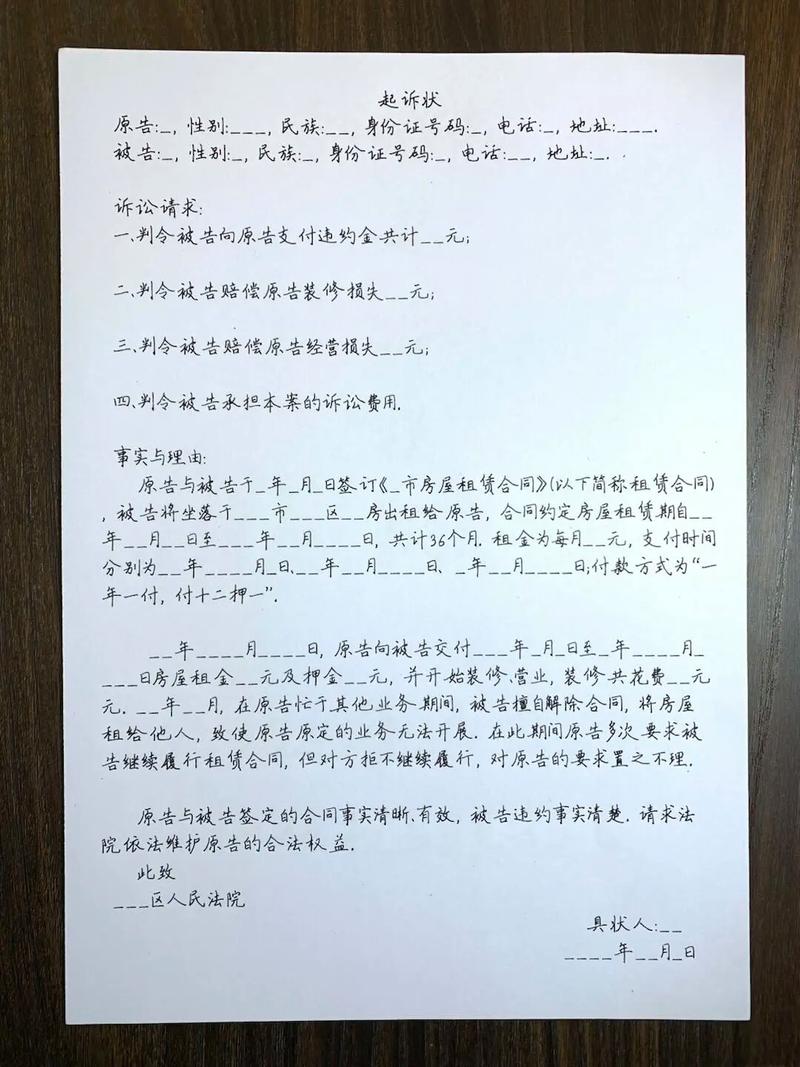 起诉状
原告:_, 性别:___, 民族:__, 身份证号码:_, 电话:_, 地址:___.
被告:_, 性别:_, 民族:_, 身份证号码:_, 电话:__, 地址:_.
诉讼请求:
一、判令被告向原告支付违约金共计__元;
二、判令被告赔偿原告装修损失__元;
三、判令被告赔偿原告经营损失__元;
四、判令被告承担本案的诉讼费用.
事实与理由:
原告与被告于_年_月_日签订《_市房屋租赁合同》(以下简称租赁合同)
, 被告将坐落于___市___区__房出租给原告, 合同约定房屋租赁期自__
年__月__日至___年__月____日, 共计36个月. 租金为每月__元, 支付时间
分别为__年____月_日、__年__月____日、_年__月____日;付款方式为“一
年一付, 付十二押一”.
__年____月____日, 原告向被告交付___年_月_日至_年____月_
___日房屋租金__元及押金__元, 并开始装修、营业, 装修共花费__元
元. __年__月, 在原告忙于其他业务期间, 被告擅自解除合同, 将房屋
租给他人, 致使原告原定的业务无法开展. 在此期间原告多次要求被
告继续履行租赁合同, 但对方拒不继续履行, 对原告的要求置之不理.
原告与被告签定的合同事实清晰、有效, 被告违约事实清楚. 请求法
院依法维护原告的合法权益.
此致
___区人民法院
具状人:__
____年__月_日